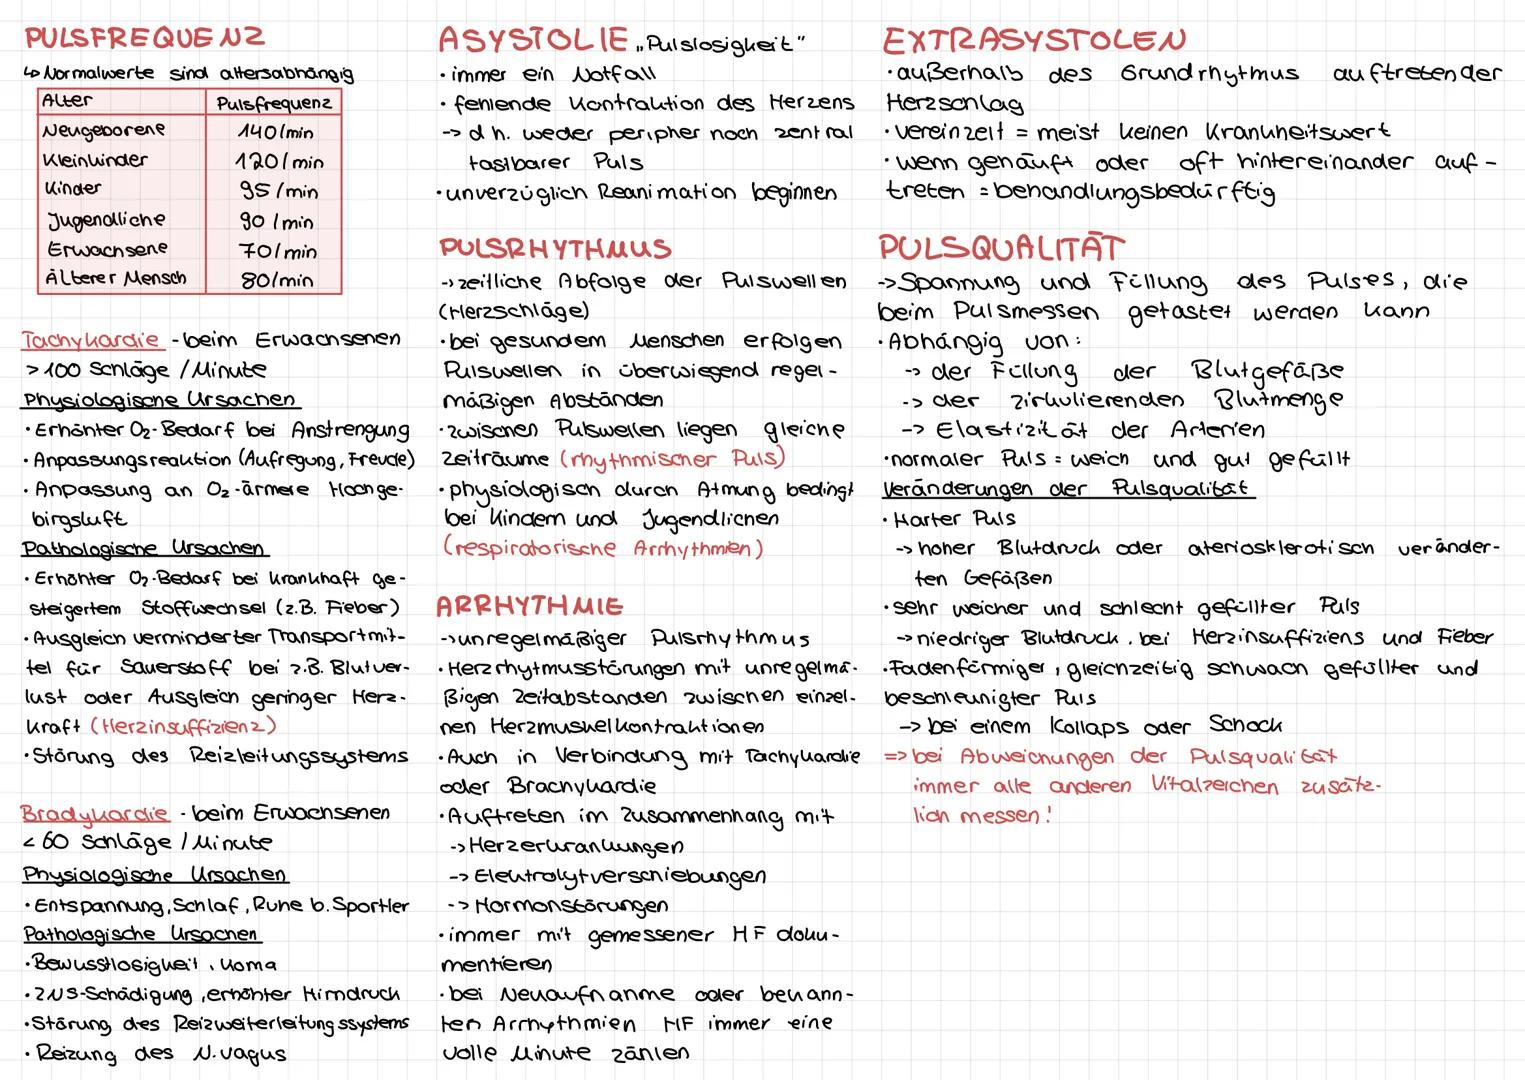 PULSFREQUENZ
↳ Normalwerte sind altersabhängig
Alter Pulsfrequenz
Neugeborene 140/min
Kleinkinder 120/min
Kinder 95/min
Jugendliche 90/min
Erwachsene 70/min
Älterer Mensch 80/min
Tachykardie - beim Erwachsenen
> 100 Schläge / Minute
Physiologische Ursachen
• Erhöhter O₂-Bedarf bei Anstrengung
• Anpassungsreaktion (Aufregung, Freude)
• Anpassung an O₂-ärmere Hochge-
birgsluft
Pathologische Ursachen
• Erhöhter O₂-Bedarf bei krankhaft ge-
steigertem Stoffwechsel (z.B. Fieber)
• Ausgleich verminderter Transportmit-
tel für Sauerstoff bei z.B. Blutver-
lust oder Ausgleich geringer Herz-
kraft (Herzinsuffizienz)
• Störung des Reizleitungssystems
Bradykardie - beim Erwachsenen
< 60 Schläge / Minute
Physiologische Ursachen
• Entspannung, Schlaf, Ruhe b. Sportler
Pathologische Ursachen
• Bewusstlosigkeit, Koma
• ZNS-Schädigung, erhöhter Hirndruck
• Störung des Reizweiterleitungssystems
• Reizung des N. vagus
ASYSTOLIE „Pulslosigkeit"
• immer ein Notfall
• fehlende Kontraktion des Herzens
-> d.h. weder peripher noch zentral
tastbarer Puls
• unverzüglich Reanimation beginnen
PULSRHYTHMUS
-> zeitliche Abfolge der Pulswellen
(Herzschläge)
• bei gesundem Menschen erfolgen
Pulswellen in überwiegend regel-
mäßigen Abständen
• zwischen Pulswellen liegen gleiche
Zeiträume (rhythmischer Puls)
• physiologisch durch Atmung bedingt
bei Kindern und Jugendlichen
(respiratorische Arrhythmien)
ARRHYTHMIE
-> unregelmäßiger Pulsrhythmus
• Herzrhytmusstörungen mit unregelmä-
ßigen Zeitabständen zwischen einzel-
nen Herzmuskelkontraktionen
• Auch in Verbindung mit Tachykardie
oder Brachykardie
• Auftreten im Zusammenhang mit
-> Herzerkrankungen
-> Elektrolytverschiebungen
-> Hormonstörungen
• immer mit gemessener HF doku-
mentieren
• bei Neuaufnahme oder bekann-
ten Arrhythmien HF immer eine
volle Minute zählen
EXTRASYSTOLEN
• außerhalb des Grundrhytmus auftretender
Herzschlag
• vereinzelt = meist keinen Krankheitswert
• wenn gehäuft oder oft hintereinander auf-
treten = behandlungsbedürftig
PULSQUALITÄT
-> Spannung und Füllung des Pulses, die
beim Pulsmessen getastet werden kann
• Abhängig von:
-> der Füllung der Blutgefäße
-> der zirkulierenden Blutmenge
-> Elastizität der Arterien
• normaler Puls = weich und gut gefüllt
Veränderungen der Pulsqualität
• Harter Puls
-> hoher Blutdruck oder ateriosklerotisch veränder-
ten Gefäßen
• sehr weicher und schlecht gefüllter Puls
-> niedriger Blutdruck, bei Herzinsuffiziens und Fieber
• Fadenförmiger, gleichzeitig schwach gefüllter und
beschleunigter Puls
-> bei einem Kollaps oder Schock
=> bei Abweichungen der Pulsqualität
immer alle anderen Vitalzeichen zusätz-
lich messen!